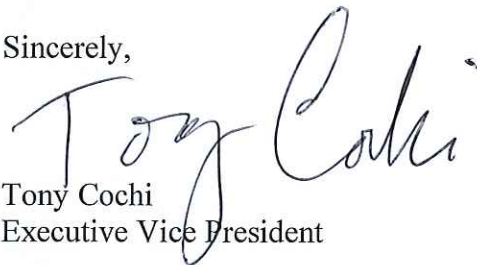 Sincerely,
Tony Cochi
Tony Cochi
Executive Vice President